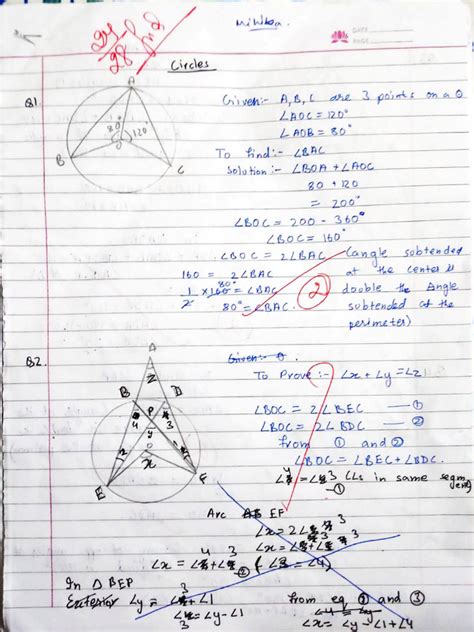 Mihika.
DATE
PAGE
Circles
Q1.
A
80°
120°
O
B
C
Given:- A, B, C are 3 points on a O
∠AOC = 120°
∠AOB = 80°
To find:- ∠BAC
Solution:- ∠BOA + ∠AOC
80 + 120
= 200°
∠BOC = 200 - 360°
∠BOC = 160°
∠BOC = 2∠BAC (angle subtended
160 = 2∠BAC at the center is
1/2 × 160 80° = ∠BAC double the Angle
80° = ∠BAC. subtended at the
perimeter)
2
Q2.
A
Z
B
D
4
P
3
y
x
E
F
Given:-
To Prove:- ∠x + ∠y = ∠z
∠BOC = 2∠BEC — ①
∠BOC = 2∠BDC — ②
from ① and ②
∠BOC = ∠BEC + ∠BDC.
∠4 = ∠3 (∠s in same segment)
—①
Arc EF
∠x = 2∠3
∠x = ∠3 + ∠3
∠x = ∠4 + ∠3 —② (∠3 = ∠4)
In △ BEP
Exterior ∠y = ∠3 + ∠1
∠3 = ∠y - ∠1
from eq ② and ③
∠4 = ∠y
∠x = ∠y - ∠1 + ∠4